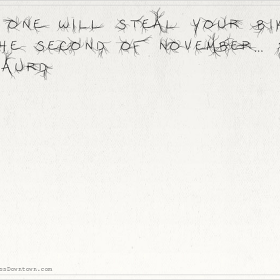 ONE WILL STEAL YOUR BI
HE SECOND OF NOVEMBER...
AURD
ssDowntown.com